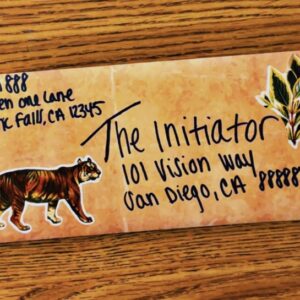 888
en one Lane
Falls, CA 12345
The Initiator
101 Vision Way
San Diego, CA 888888